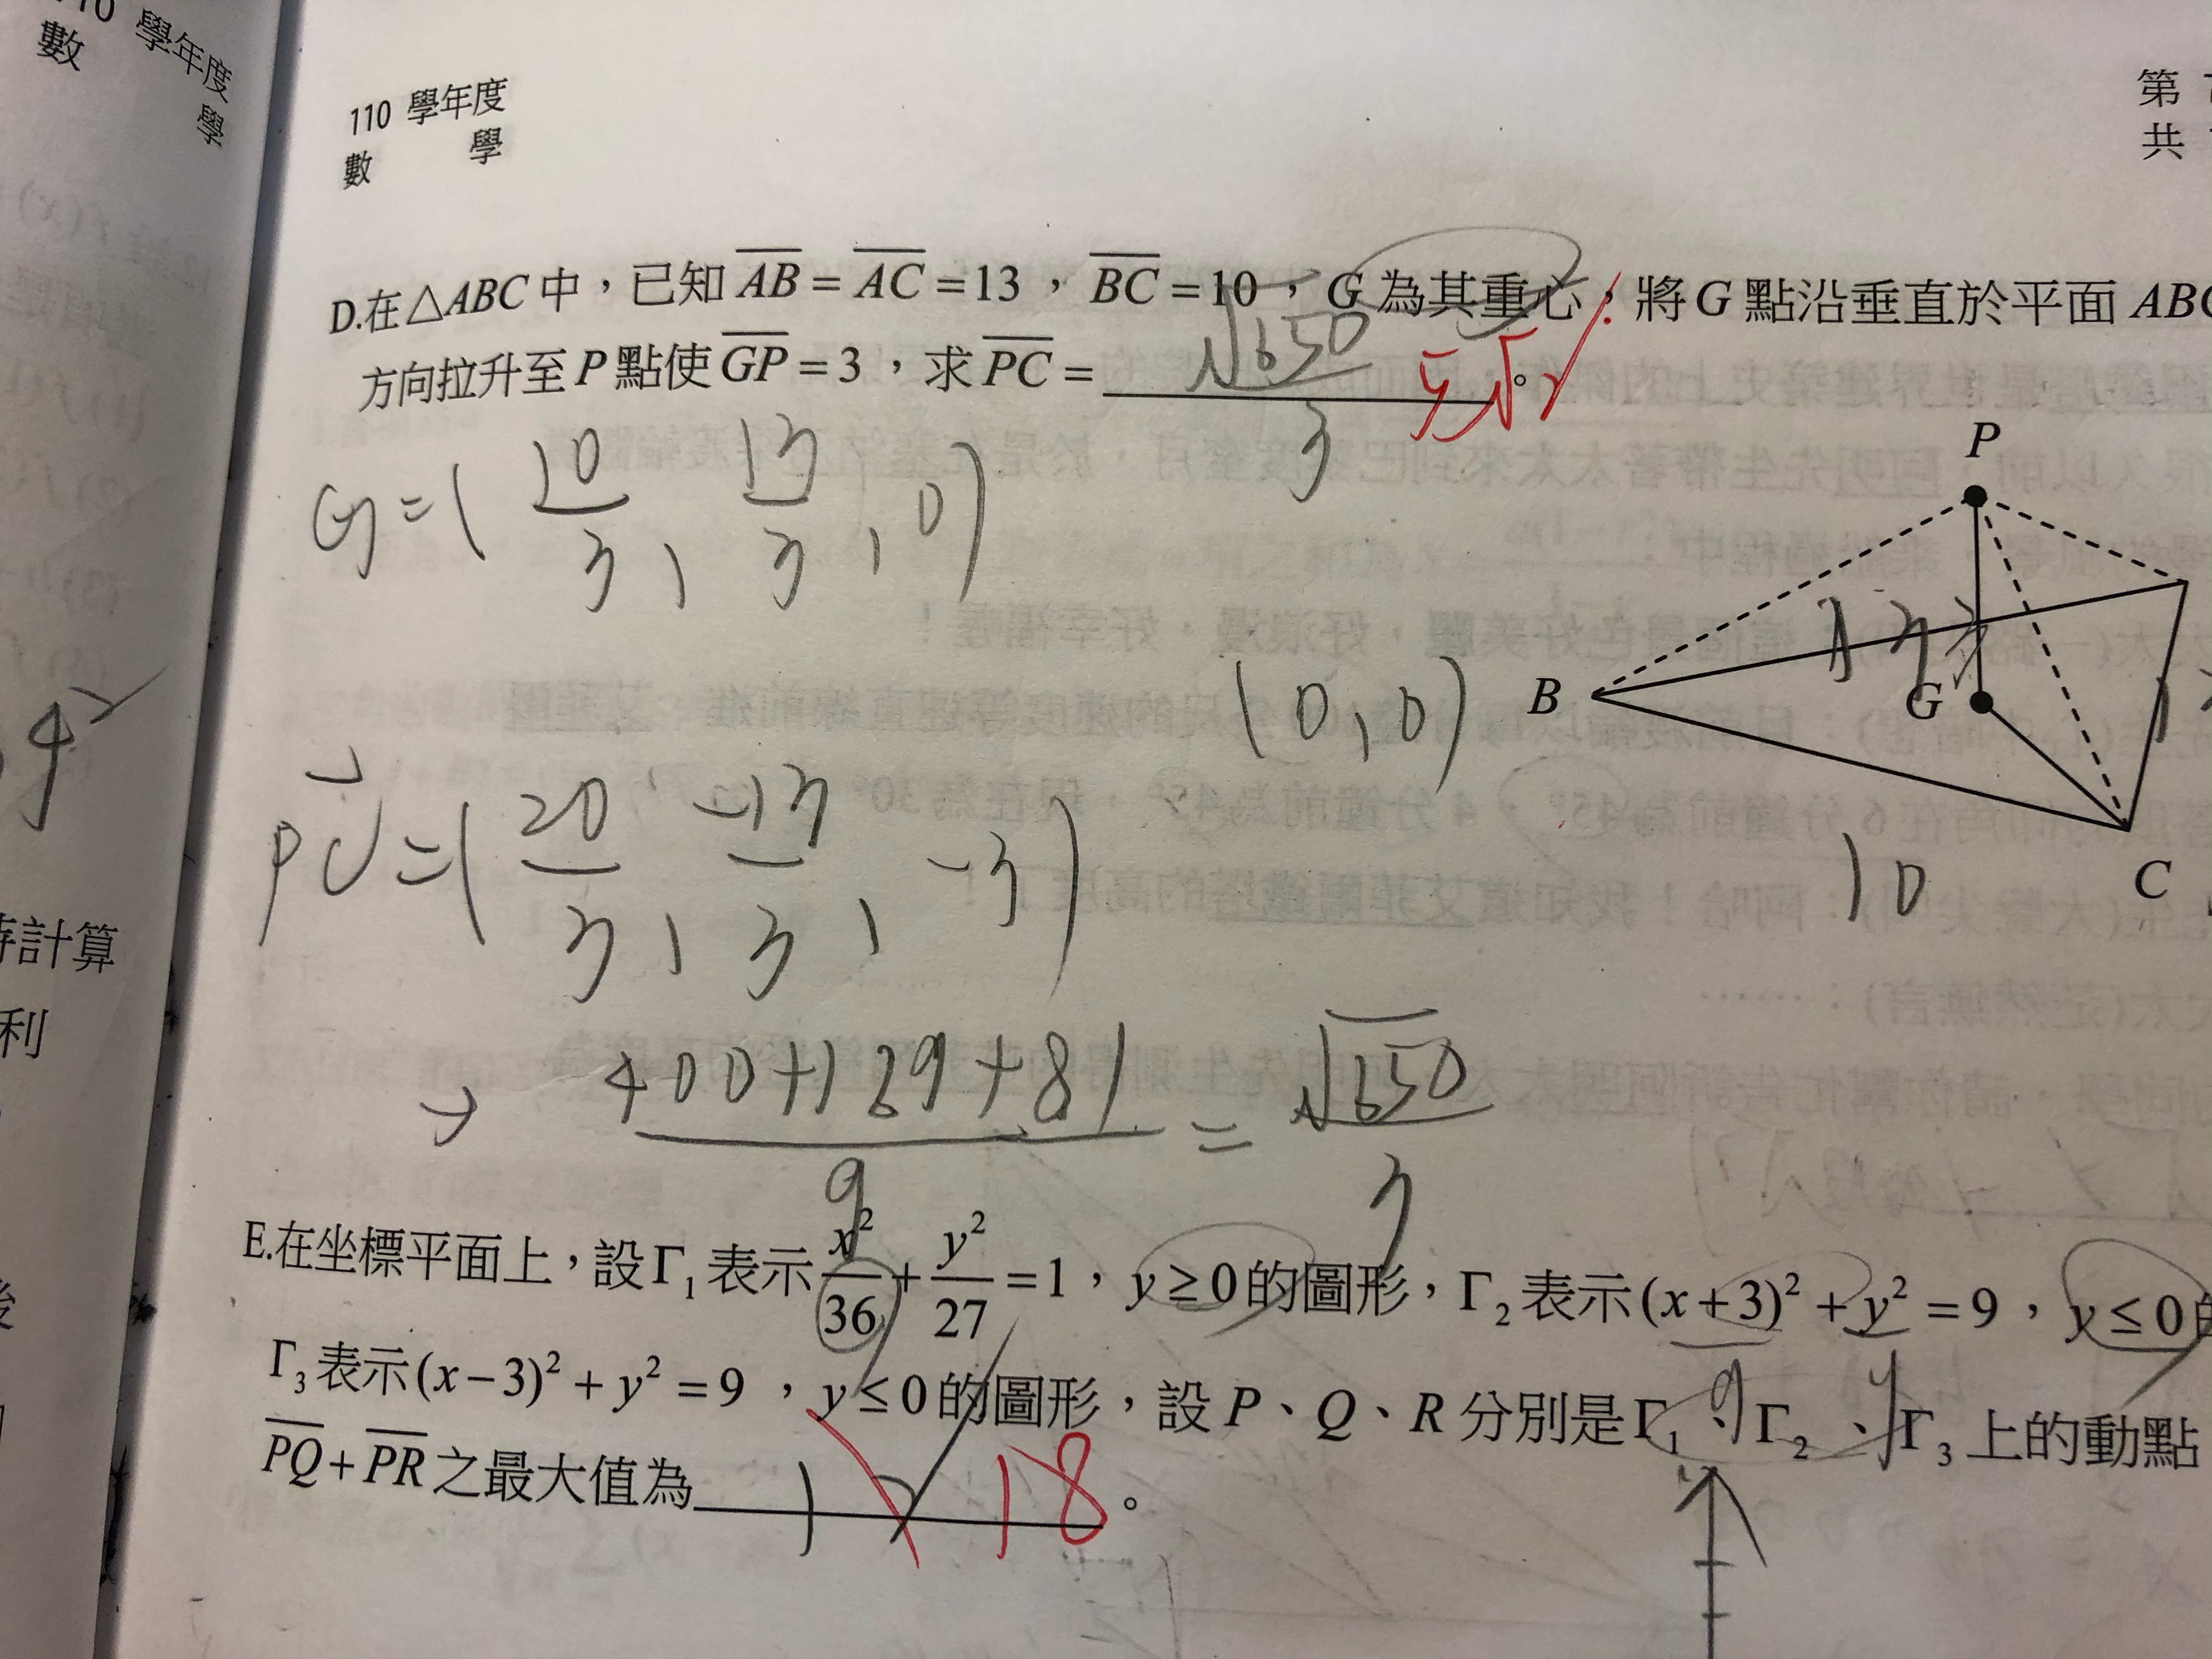 110 學年度
數 學
110 學年度
數 學
第
共
D.在△ABC中，已知 AB = AC =13 ， BC =10 ， G 為其重心，將G 點沿垂直於平面 ABC
方向拉升至 P 點使 GP = 3 ，求 PC = √650/3 5√2 。
G=(10/3, 13/3, 0)
P
B
G
C
(0,0)
10
PC=(20/3, -13/3, -3)
→ 400+169+81/9 = √650/3
計算
利
E.在坐標平面上，設Γ₁表示 x²/36 + y²/27 =1， y≥0的圖形，Γ₂表示(x+3)² + y² = 9 ， y≤0的
Γ₃表示(x−3)² + y² = 9 ， y≤0的圖形，設 P、Q、R 分別是Γ₁、Γ₂、Γ₃上的動點
PQ+PR之最大值為 18 。